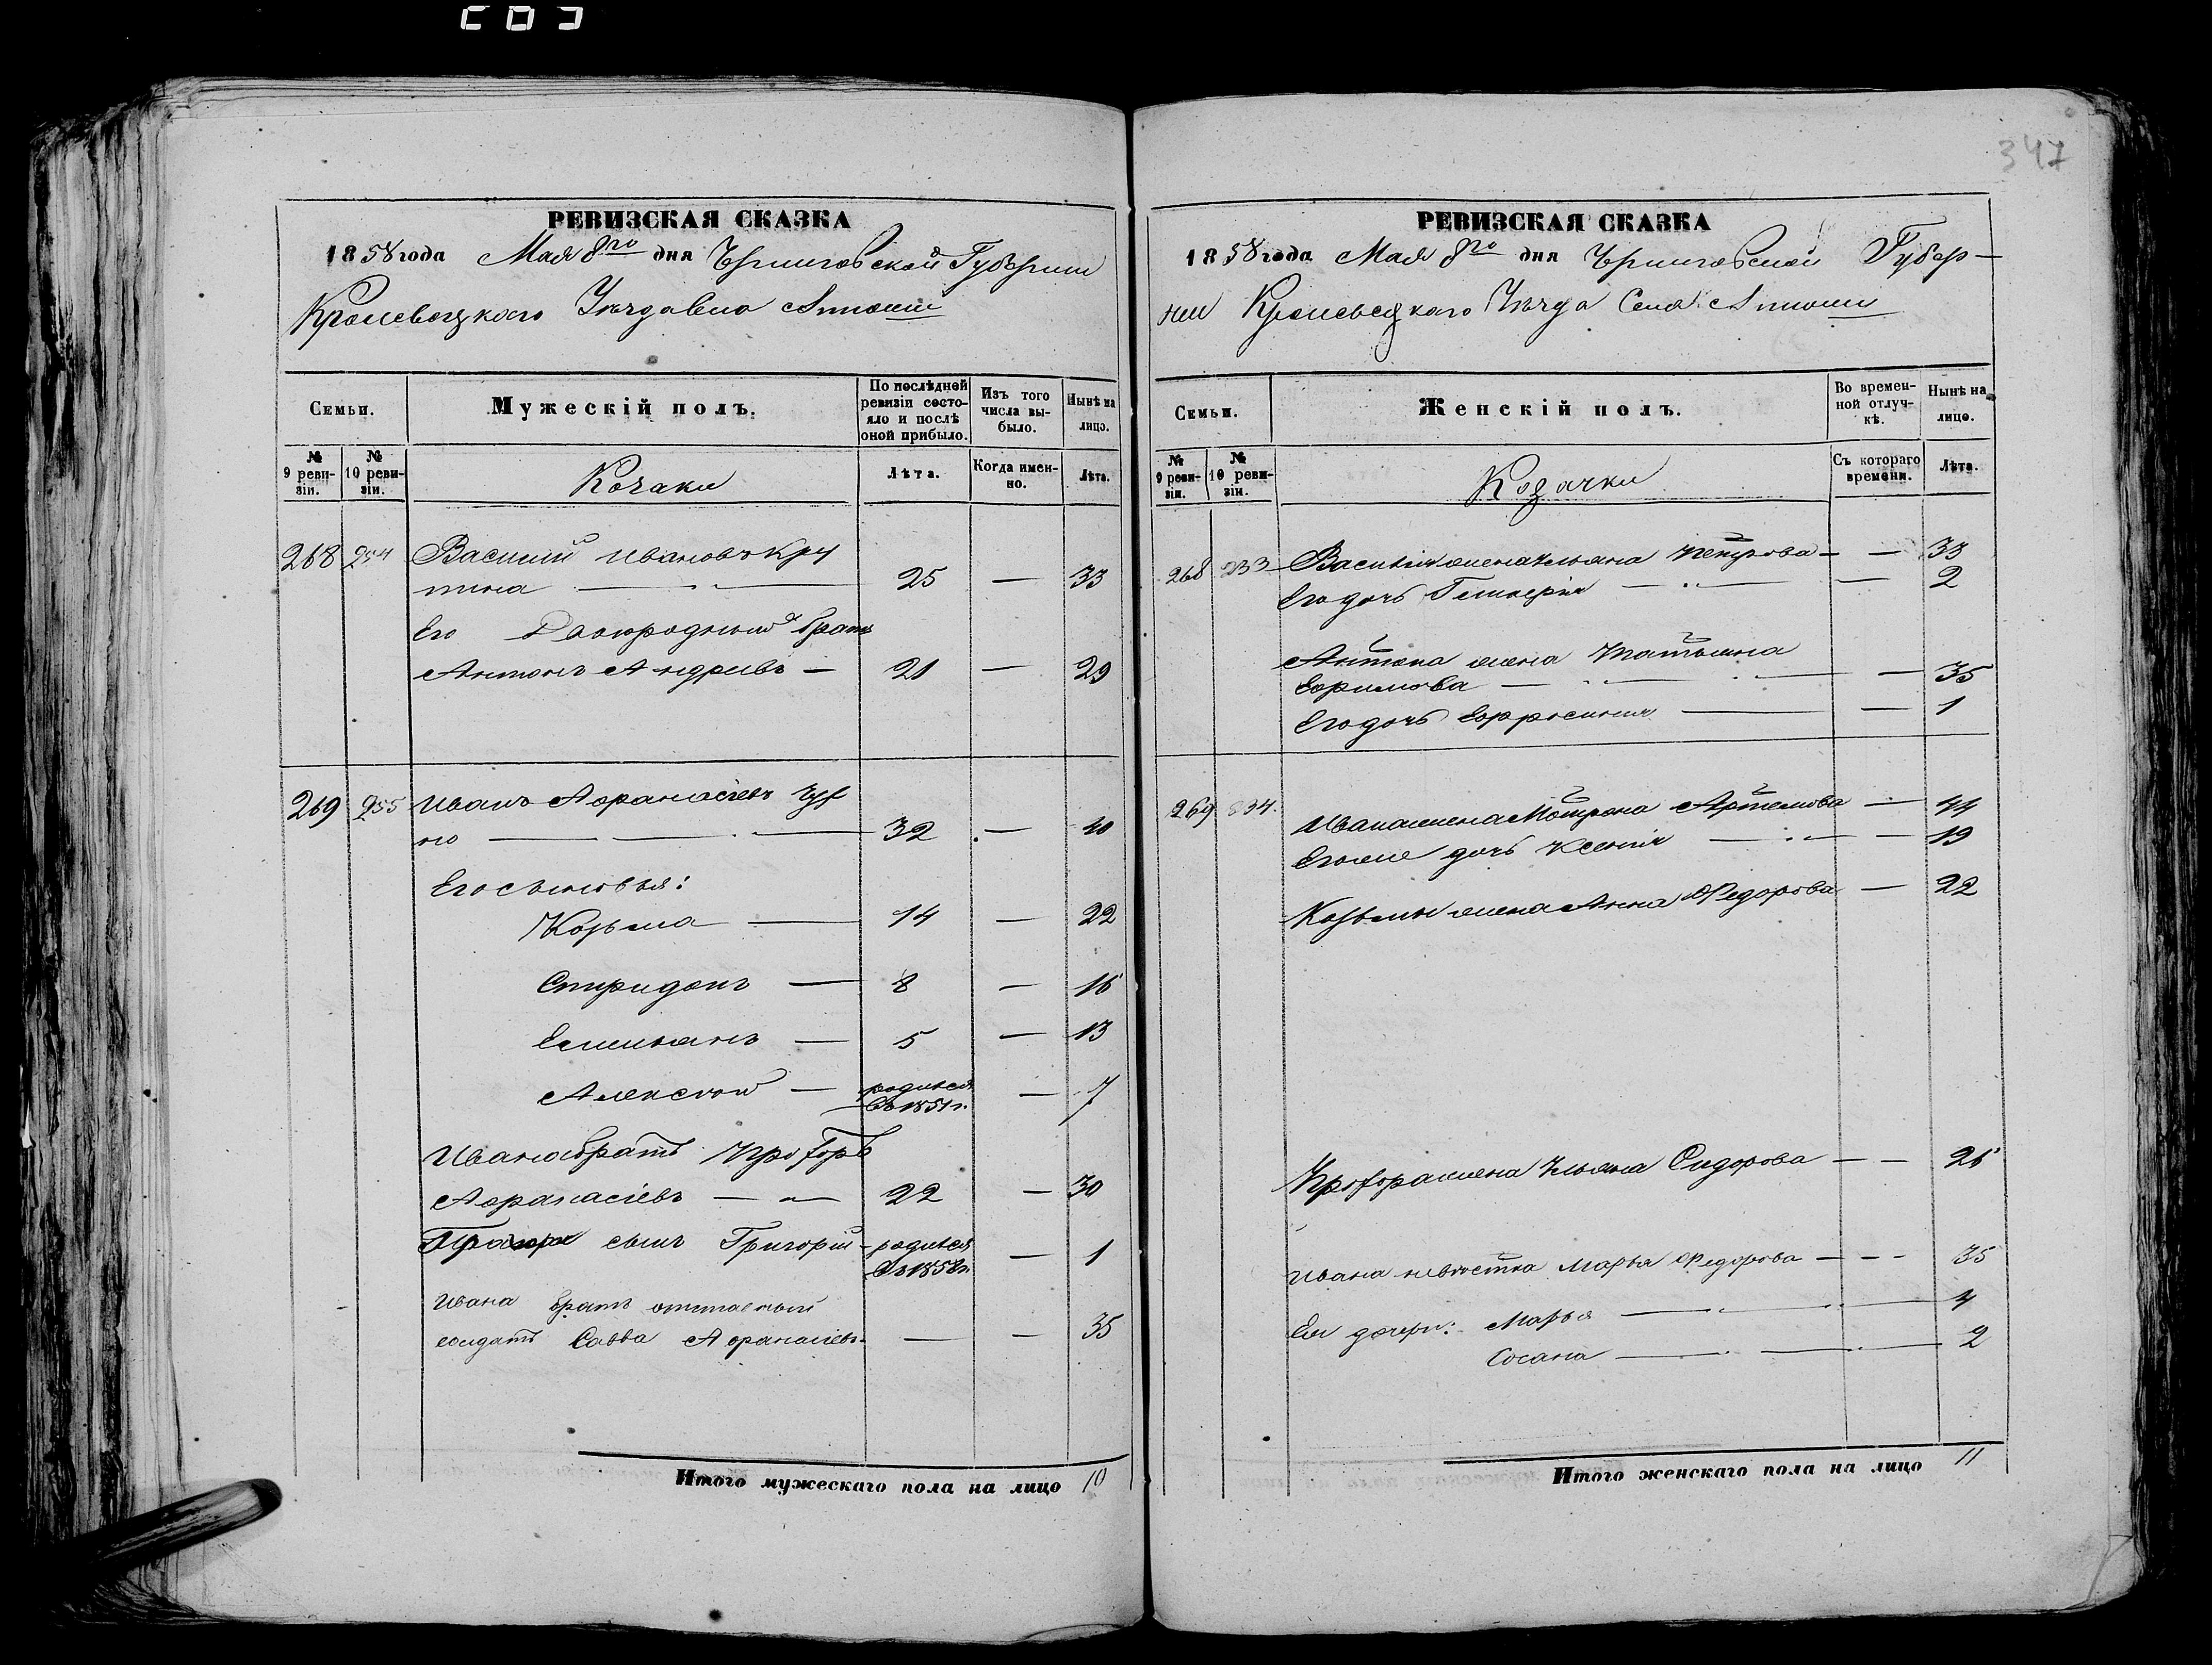 347
РЕВИЗСКАЯ СКАЗКА
1858 года Мая 8го дня Черниговской Губернии
Кролевецкого Уезда Села
Семьи. Мужескій полъ. По послѣдней ревизіи состояло и послѣ оной прибыло. Изъ того числа выбыло. Нынѣ на лицо.
№ 9 ревизіи. № 10 ревизіи. Козаки Лѣта. Когда именно. Лѣта.
268 254 Василий Ивановъ Кру
пина — 25 — 33
Его Двоюродный братъ
Антонъ Андреевъ — 21 — 29
269 255 Иванъ Афанасіевъ
но — 32 — 40
Его сыновья:
Козьма — 14 — 22
Спиридонъ — 8 — 16
Емельянъ — 5 — 13
Алексей — родился въ 1851 г. — 7
Ивана братъ Прохоръ
Афанасіевъ — 22 — 30
Прохора сынъ Григорій — родился — 1
Ивана братъ отставной
солдатъ Савва Афанасіевъ — — 35
Итого мужескаго пола на лицо 10
РЕВИЗСКАЯ СКАЗКА
1858 года Мая 8го дня Черниговской Губер-
нии Кролевецкаго Уезда Села
Семьи. Женскій полъ. Во временной отлучкѣ. Нынѣ на лицо.
№ 9 ревизіи. № 10 ревизіи. Козачки Съ котораго времени. Лѣта.
268 233 Василия жена Ульяна Петрова — — 33
Его дочь Гликерия — — 2
Антона жена Татьяна
Ефимова — — 35
Его дочь Евфросиния — — 1
269 234. Ивана жена Мотрона Артемова — 44
Его же дочь Ксения — — 19
Козьмы жена Анна Федорова — 22
Прохора жена Ульяна Сидорова — — 26
Ивана невестка Марья Федорова — — 35
Ея дочери: Марья — 4
Сосана — 2
Итого женскаго пола на лицо 11